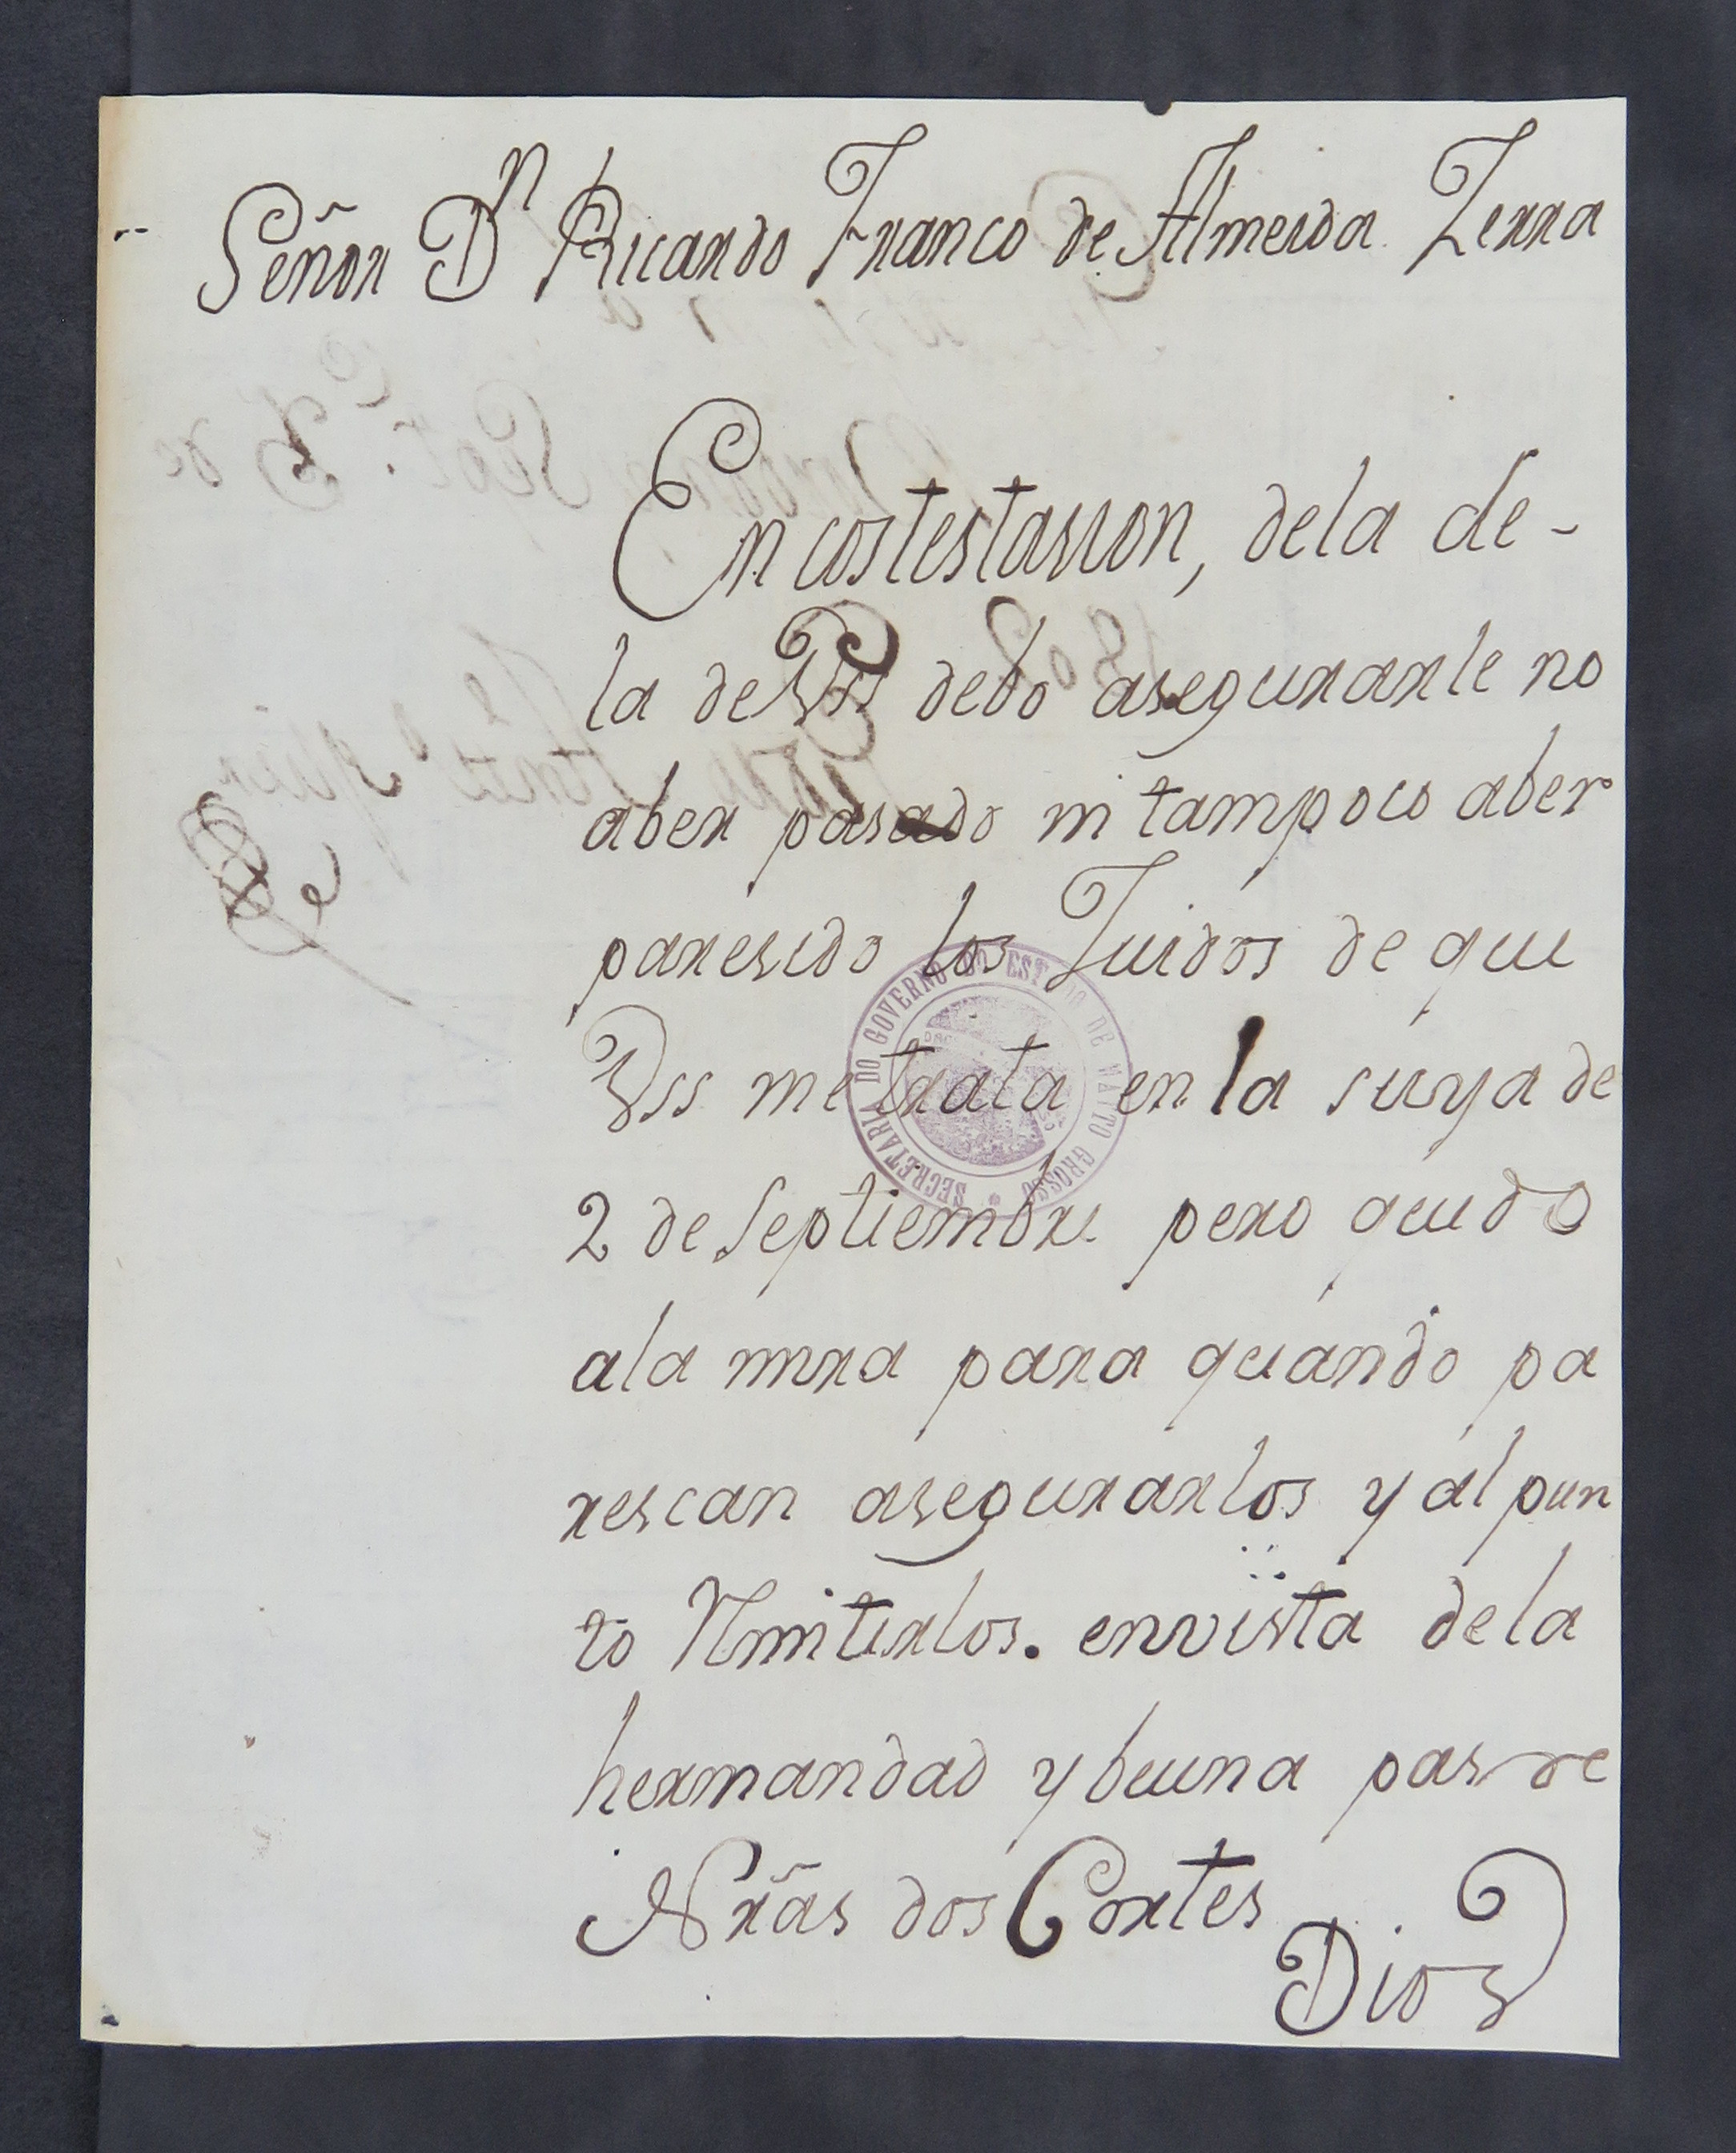 Señor Dn Ricardo Franco de Almeida Zerra
En costestasion, dela de-
la de Vss debo asegurarle no
aber pasado ni tampoco aber
paresido los Juidos de que
Vss me trata en la suya de
2 de Septiembre pero quedo
ala mira para quando pa
rescan asegurarlos y al pun
to Rmitirlos. envista dela
hermandad y buena pas de
Nrãs dos Cortes
Dios
SECRETARIA DO GOVERNO DO ESTADO DE MATTO GROSSO